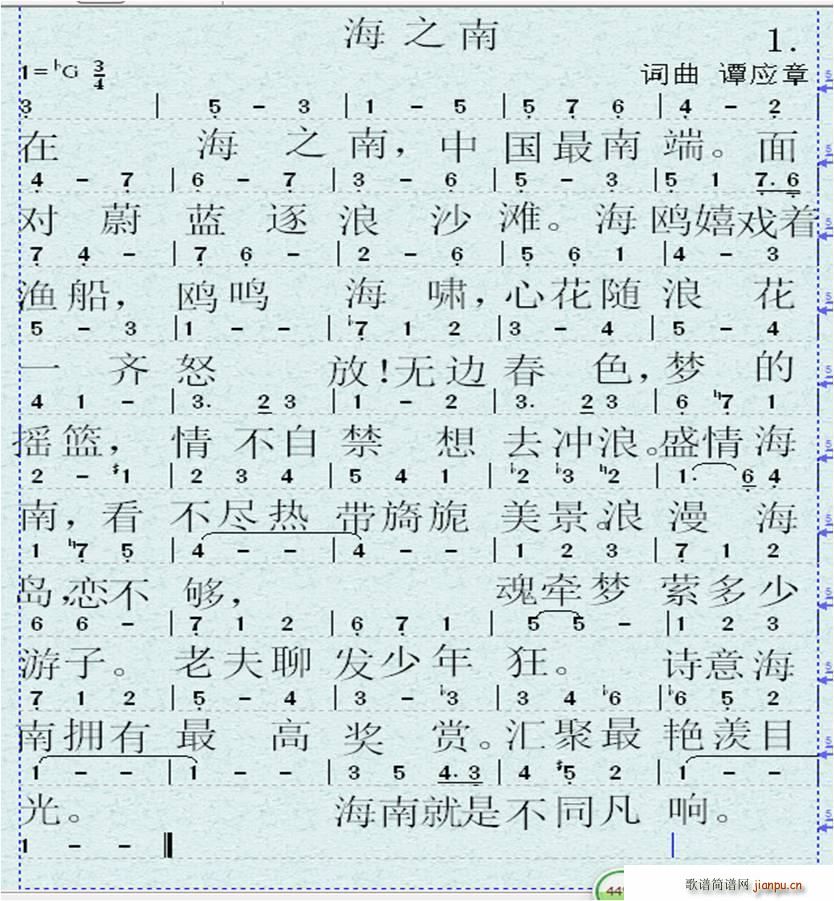 海之南
1.
1=♭G 3/4
词曲 谭应章
3 | 5 - 3 | 1 - 5 | 5 7 6 | 4 - 2
在 海 之 南，中 国最南 端。面
4 - 7 | 6 - 7 | 3 - 6 | 5 - 3 | 5 1 7. 6
对 蔚 蓝 逐 浪 沙 滩。海 鸥嬉戏着
7 4 - | 7 6 - | 2 - 6 | 5 6 1 | 4 - 3
渔船， 鸥鸣 海 啸，心花随 浪 花
5 - 3 | 1 - - | ♭7 1 2 | 3 - 4 | 5 - 4
一 齐 怒 放!无边 春 色，梦 的
4 1 - | 3. 2 3 | 1 - 2 | 3. 2 3 | 6 ♮7 1
摇篮， 情 不自 禁 想 去冲浪。盛情海
2 - ♯1 | 2 3 4 | 5 4 1 | ♭2 ♭3 ♮2 | 1. 6 4
南，看 不尽热 带旖旎 美景。浪 漫 海
1 ♮7 5 | 4 - - | 4 - - | 1 2 3 | 7 1 2
岛，恋不 够， 魂牵梦 萦多少
6 6 - | 7 1 2 | 6 7 1 | 5 5 - | 1 2 3
游子。 老夫聊 发少年 狂。 诗意海
7 1 2 | 5 - 4 | 3 - ♭3 | 3 4 ♭6 | ♭6 5 2
南拥有 最 高 奖 赏。汇聚最 艳羡目
1 - - | 1 - - | 3 5 4. 3 | 4 ♯5 2 | 1 - -
光。 海南就是不同凡 响。
1 - -
歌谱简谱网 jianpu.cn